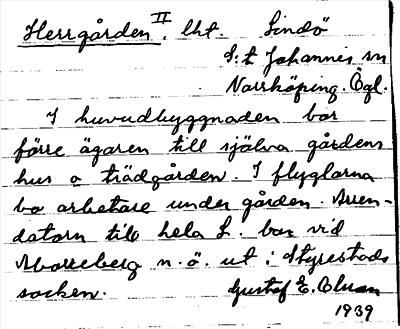 Herrgården II. lht. Lindö
S:t Johannes sn
Norrköping. Ögl.
I huvudbyggnaden bor
förre ägaren till själva gårdens
hus o trädgården. I flyglarna
bo arbetare under gården. Arren-
datorn till hela L. bor vid
Aborreberg n. ö. ut i Styrestads
socken. Gustaf E. Olsson
1939